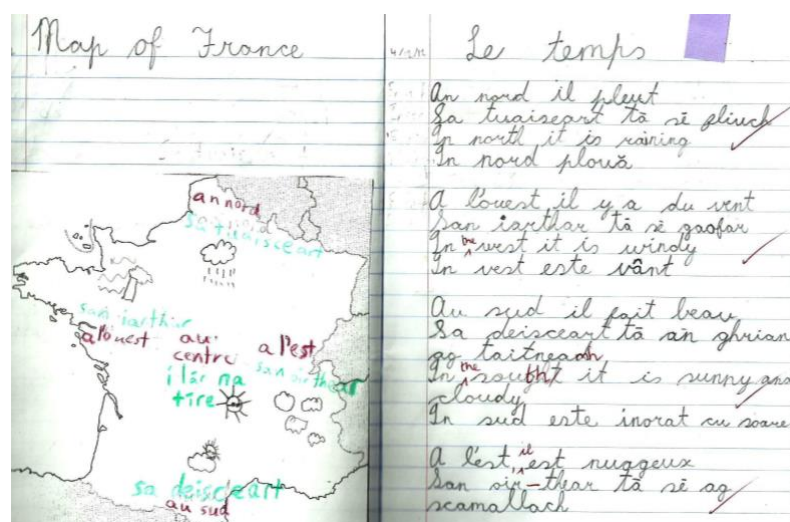 Map of France
an nord
sa tuaisceart
san iarthar
a l'ouest
au
centre
a l'est
san oirthear
i lár na
tíre
sa deisceart
au sud
4/12/12
Le temps
An nord il pleut
Sa tuaiseart tá sé pliuch
In north it is raining
In nord plouă
A l'ouest il y a du vent
San iarthar tá sé gaofar
In the west it is windy
In vest este vânt
Au sud il fait beau
Sa deisceart tá an ghrian
ag taitneamh
In the south it is sunny and
cloudy
In sud este inorat cu soare
A l'est, il est nuggeux
San oir-thear tá sé ag
scamallach